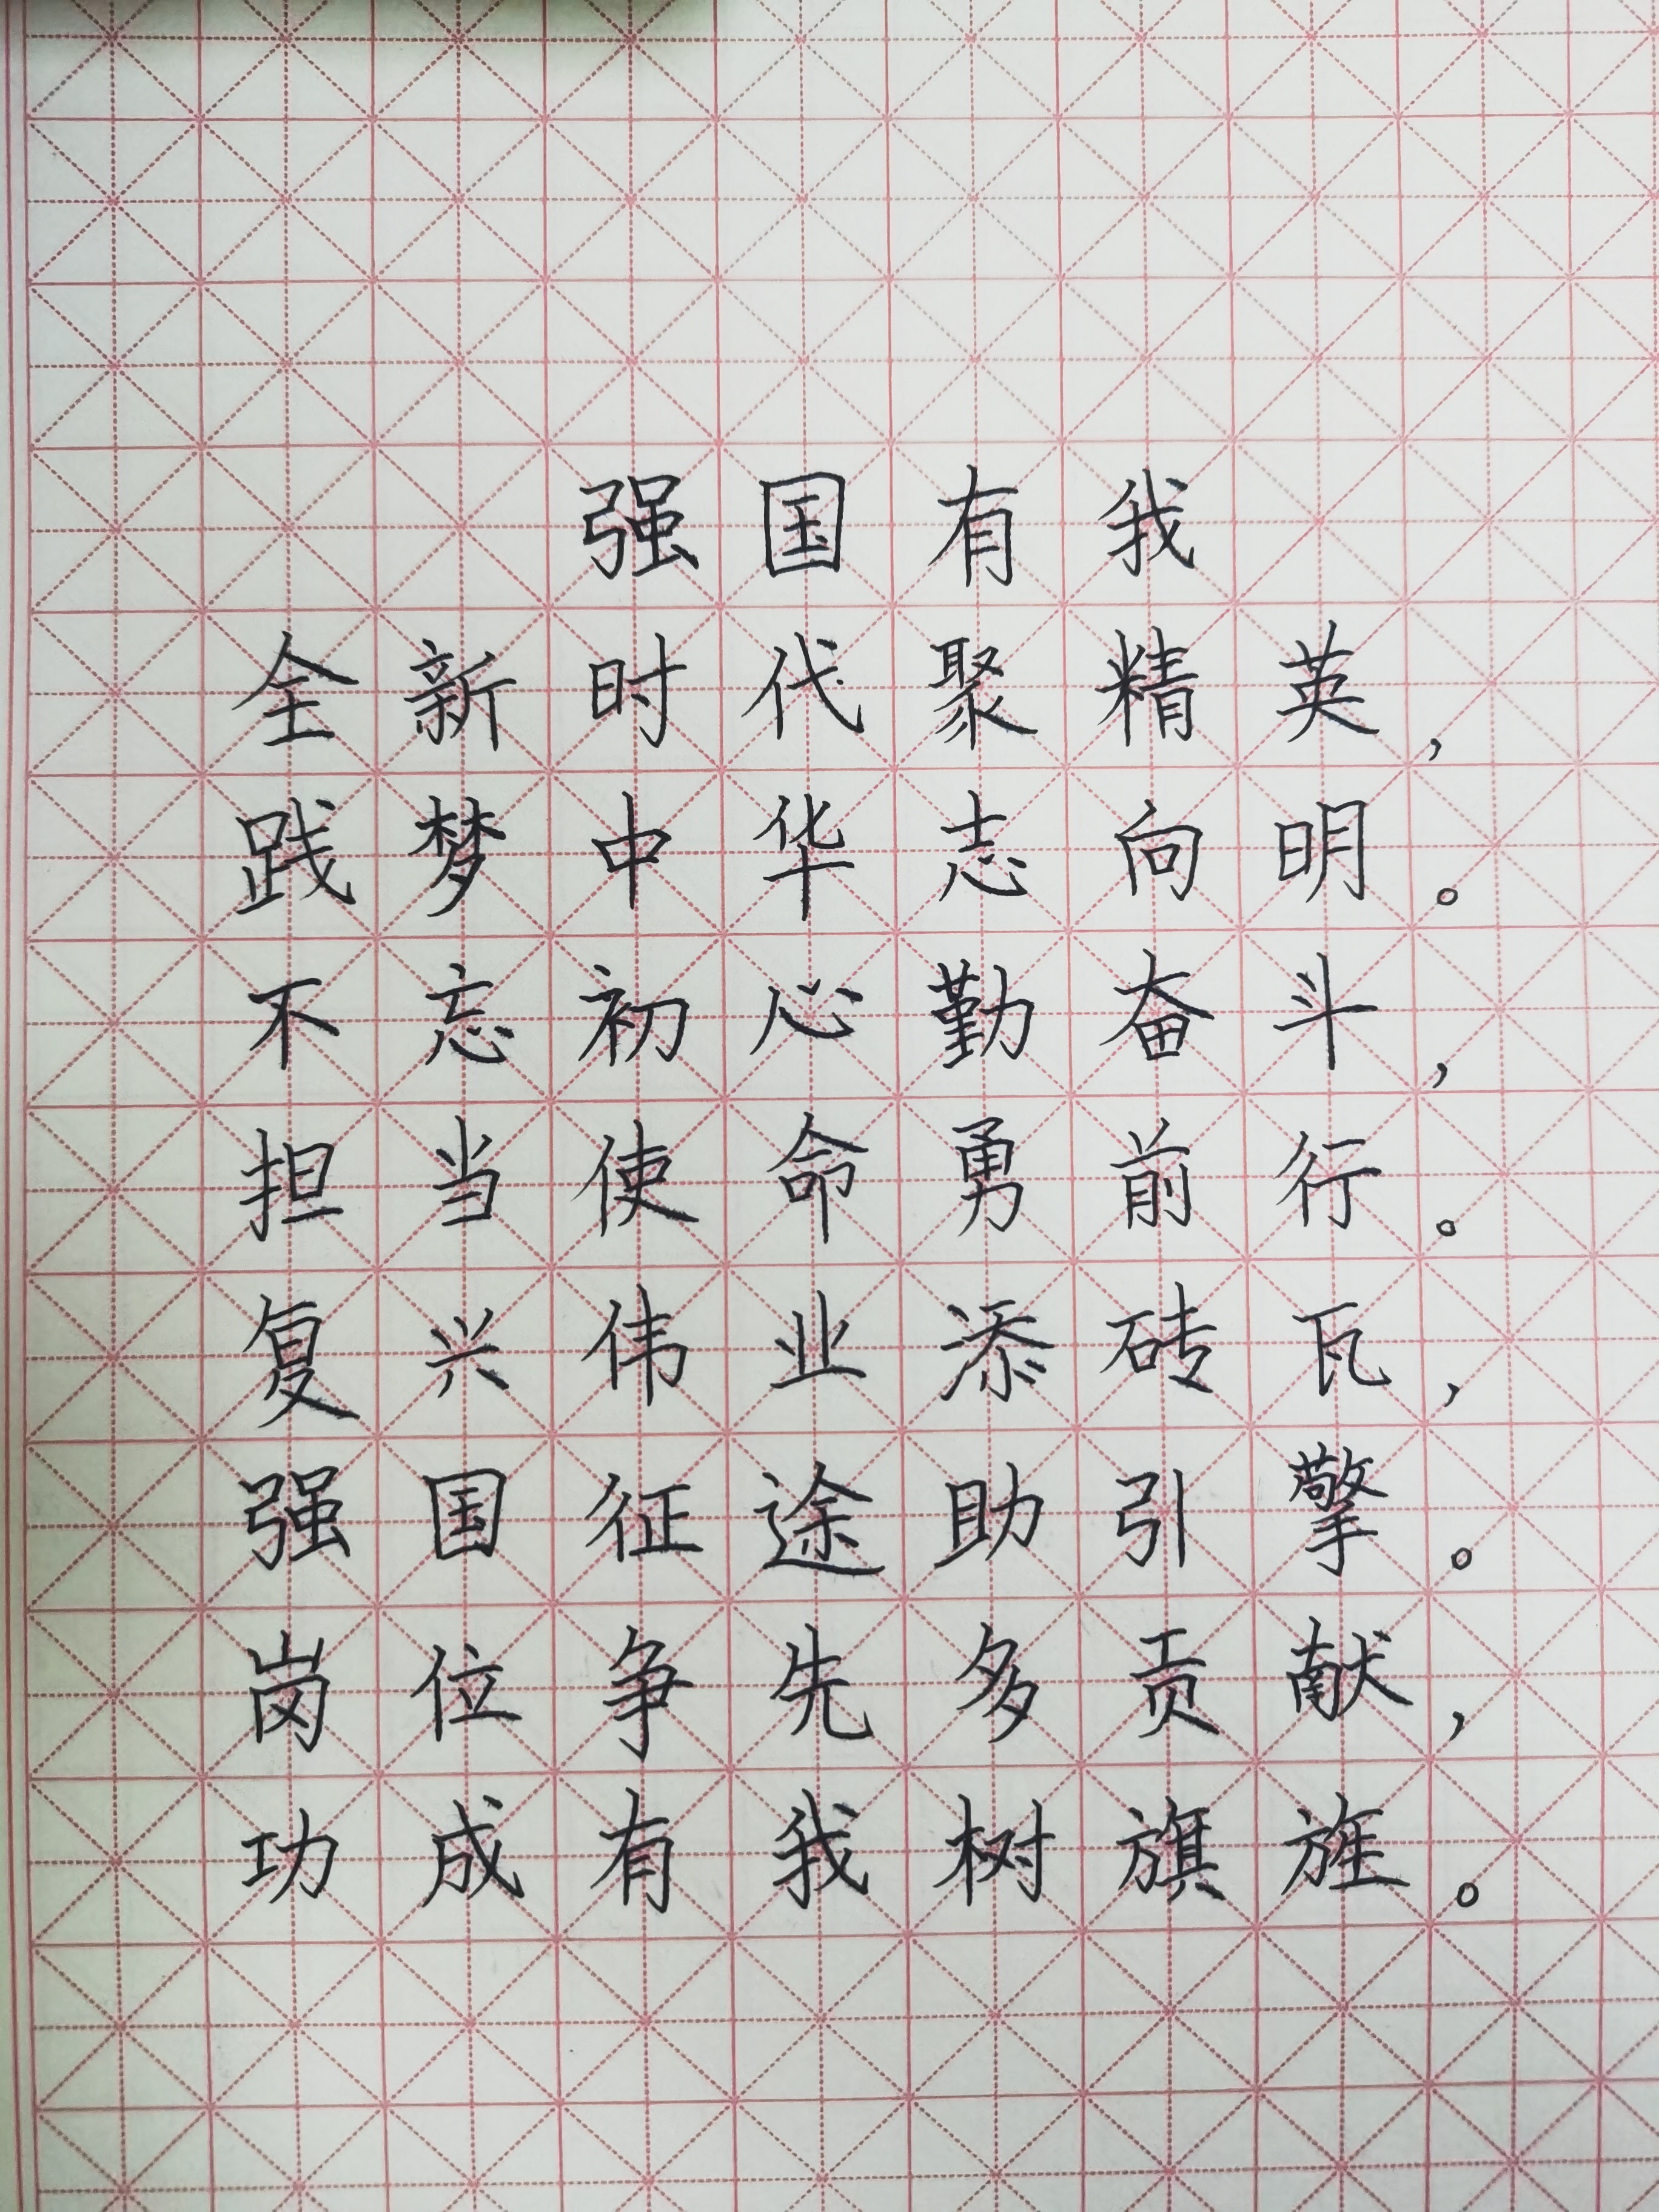 强国有我
全新时代聚精英，
践梦中华志向明。
不忘初心勤奋斗，
担当使命勇前行。
复兴伟业添砖瓦，
强国征途助引擎。
岗位争先多贡献，
功成有我树旗旌。